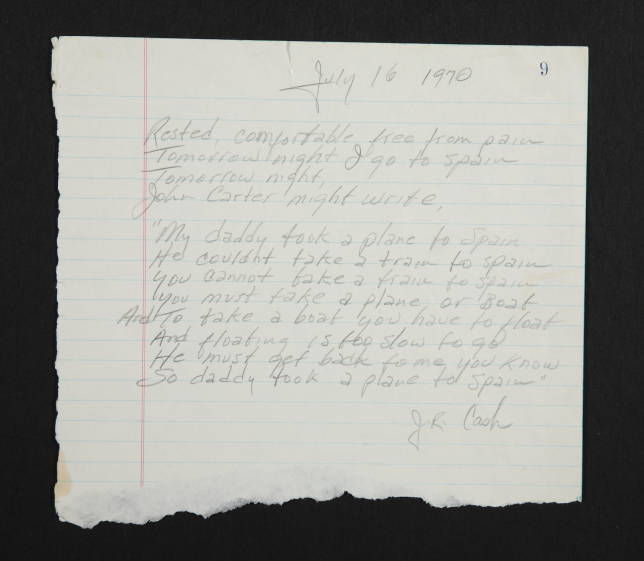 July 16 1970
9
Rested, comfortable free from pain
Tomorrow night I go to Spain
Tomorrow night,
John Carter might write,
"My daddy took a plane to Spain
He couldnt take a train to Spain
You cannot take a train to Spain
You must take a plane, or Boat
And To take a boat you have to float
And floating is too slow to go
He must get back to me, you know
So daddy took a plane to Spain"
J.R. Cash